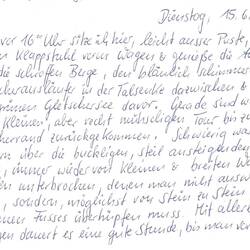 Dienstag, 15.6.
vor 16°° Uhr sitze ich hier, leicht ausser Puste,
Klappstuhl vorm Wagen & genieße die
die schroffen Berge, den bläulich schimmern
ausläufer in der Talsenke dazwischen &
grünen Gletschersee davor. Gerade sind
kleinen, aber recht mühseligen Tour bis zu
errand zurückgekommen. Schwierig
über die buckligen, steil ansteigenden
, immer wieder von kleinen & breiten
unterbrochen, denen man nicht aus
, sondern, möglichst von Stein zu Stein
Fusses überhüpfen muss. Mit aller
dauert es eine gute Stunde, bis man